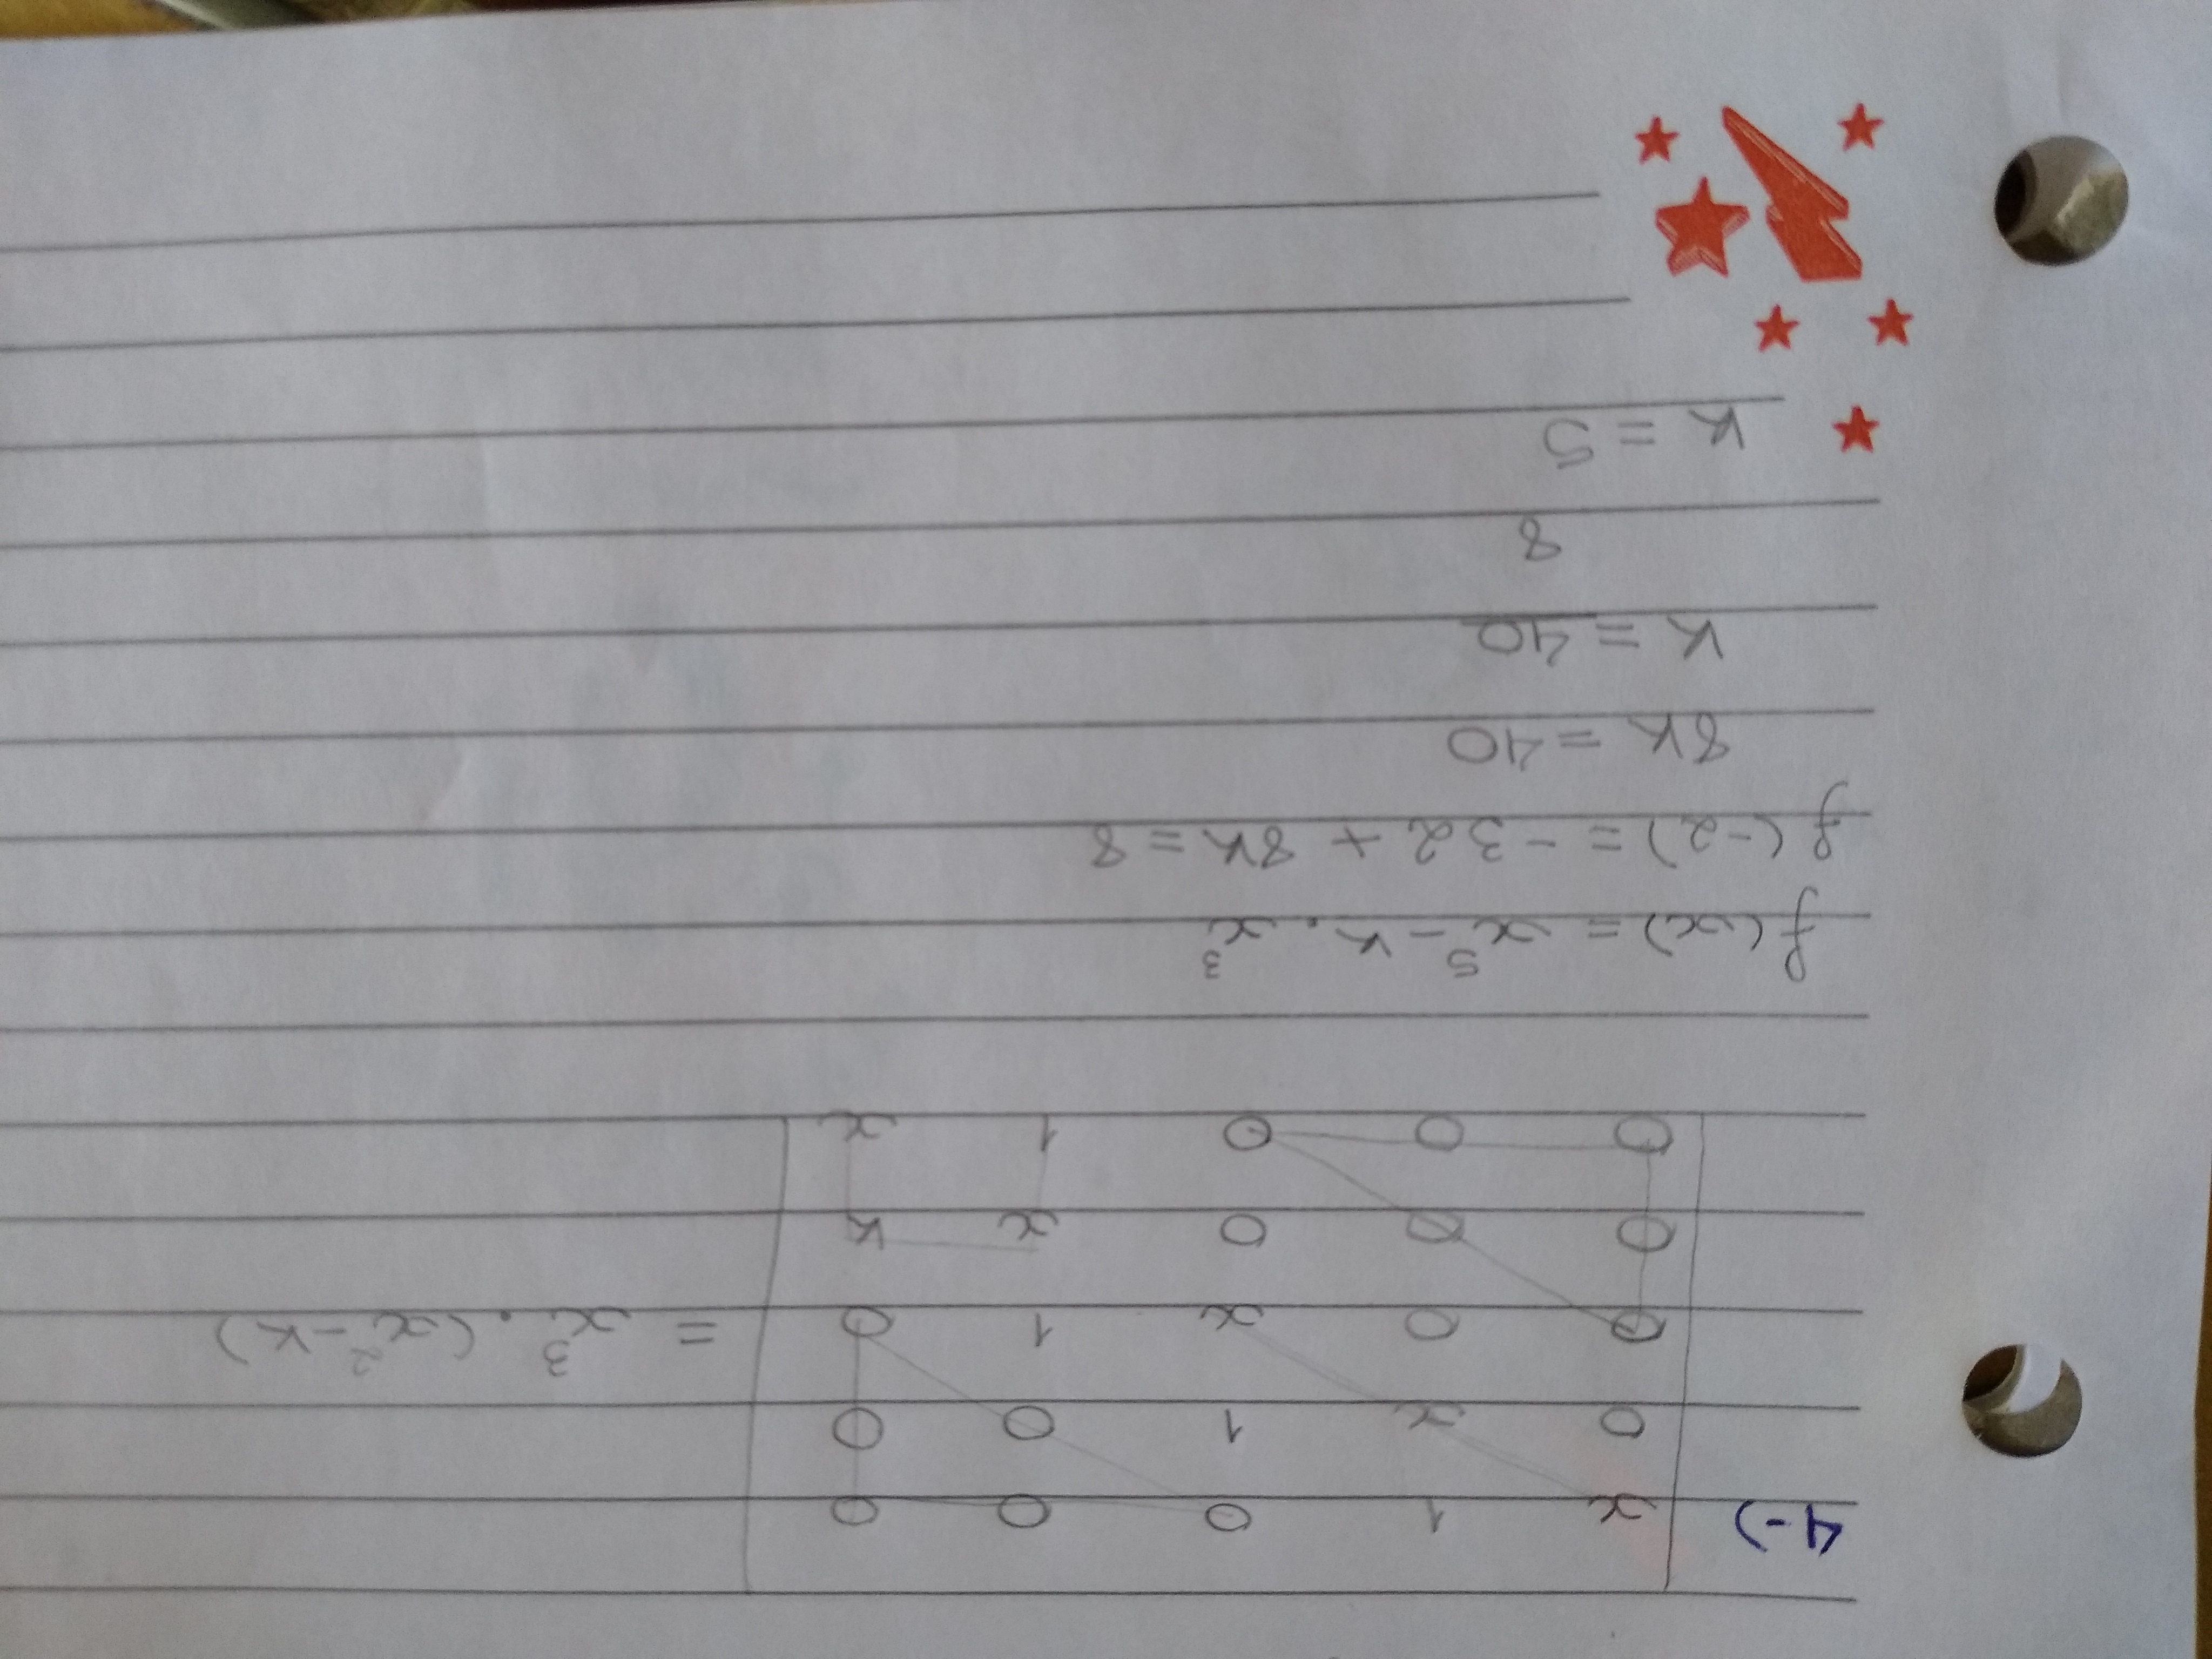 4-) x 1 0 0 0
0 x 1 0 0
0 0 x 1 0 = x³ . (x² - k)
0 0 0 x k
0 0 0 1 x
f(x) = x⁵ - k . x³
f(-2) = - 32 + 8k = 8
8k = 40
k = 40
8
k = 5